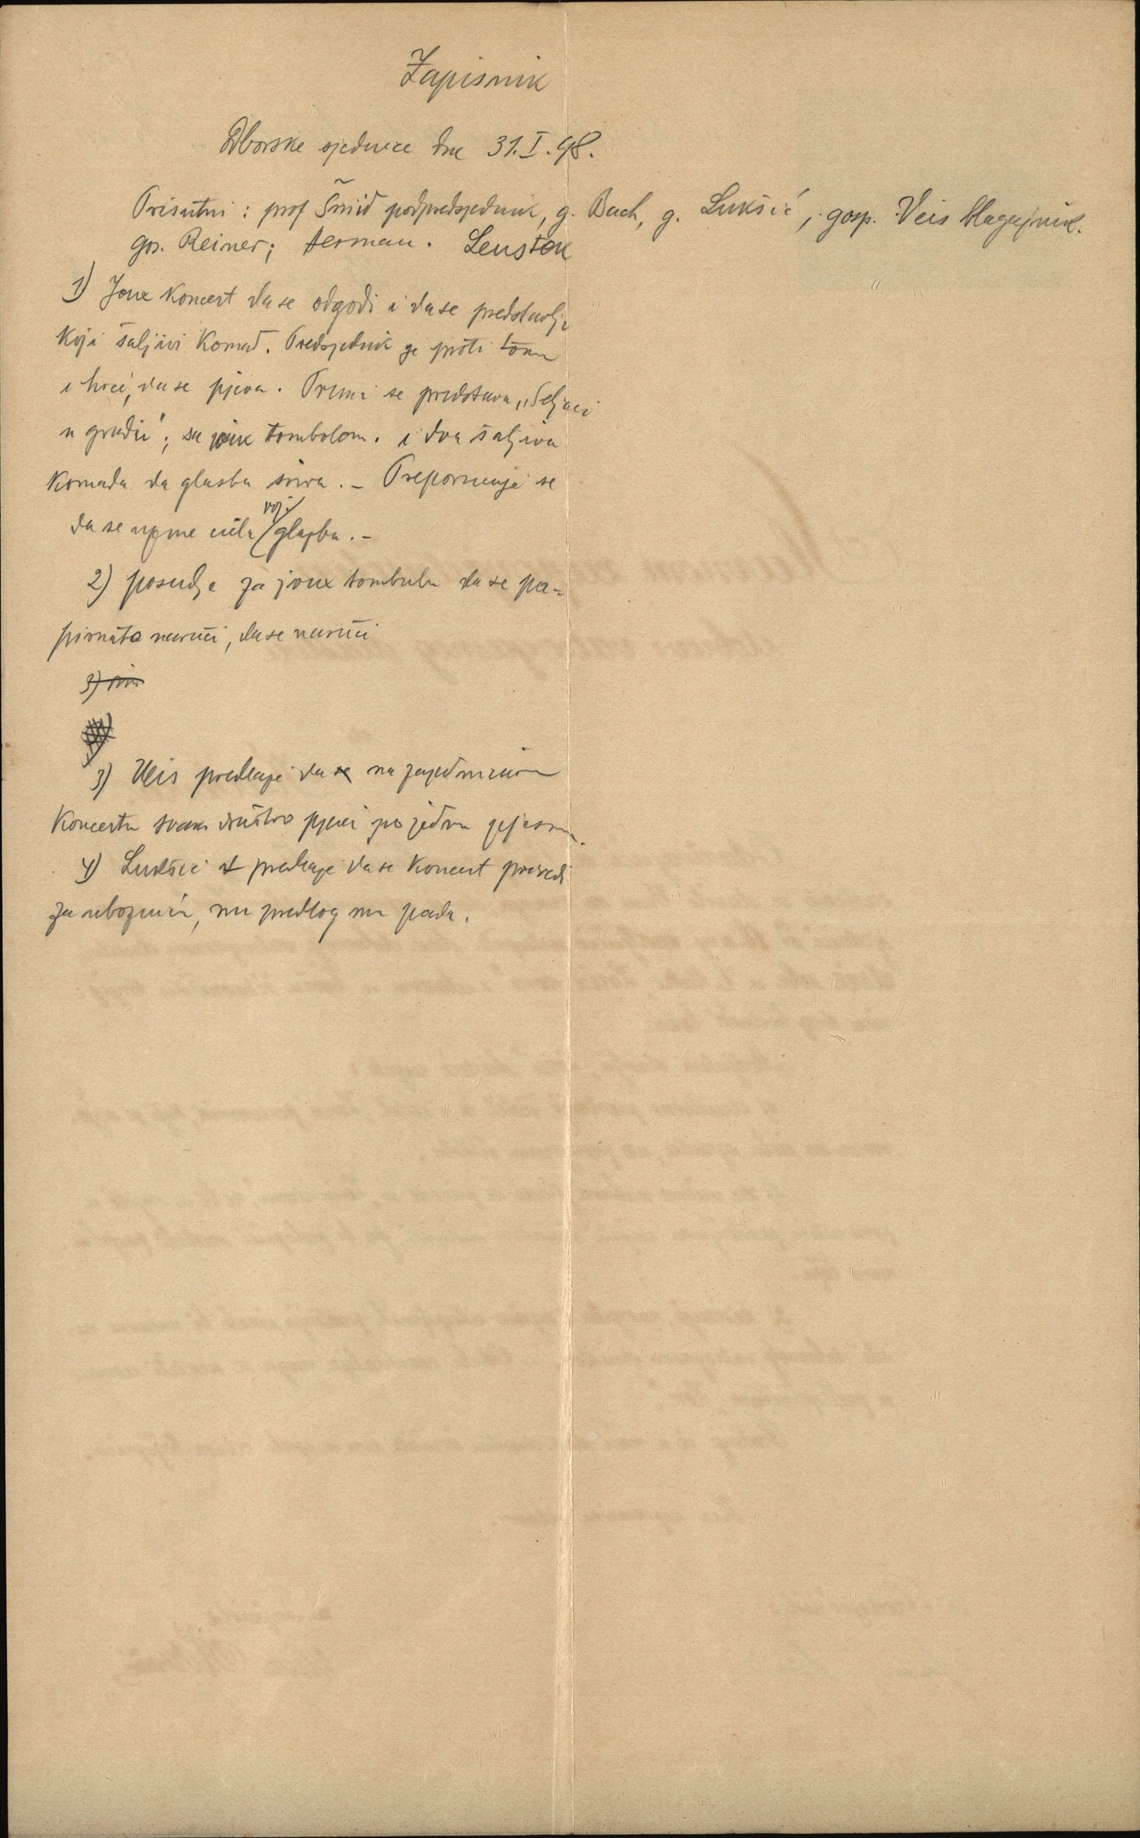 Zapisnik
Odborske sjednice dne 31.I.98.
Prisutni: prof Šmid podpredsjednik, g. Bach, g. Lukšić, gosp. Veis blagajnik.
gos. Reiner; Herman. Lenstok
1) Joux Koncert da se odgodi i da se predstavlja
koji šaljivi Komad. Predsjednik je proti tomu
i hoće, da se pjeva. Prima se predstava „Seljaci
u gradu"; sa joux tombolom. i dva šaljiva
komada da glasba svira. - Preporučuje se
da se uzme cila voj. glasba. -
2) posudje za joux tombulu da se pa-
pirnato naruči, da se naruči
3)
3) Veis predlaže da se na zajedničkom
Koncertu svako društvo pjeva po jednu pjesmu.
4) Lukšić predlaže da se Koncert priredi
za ubožnicu, no predlog mu pada.